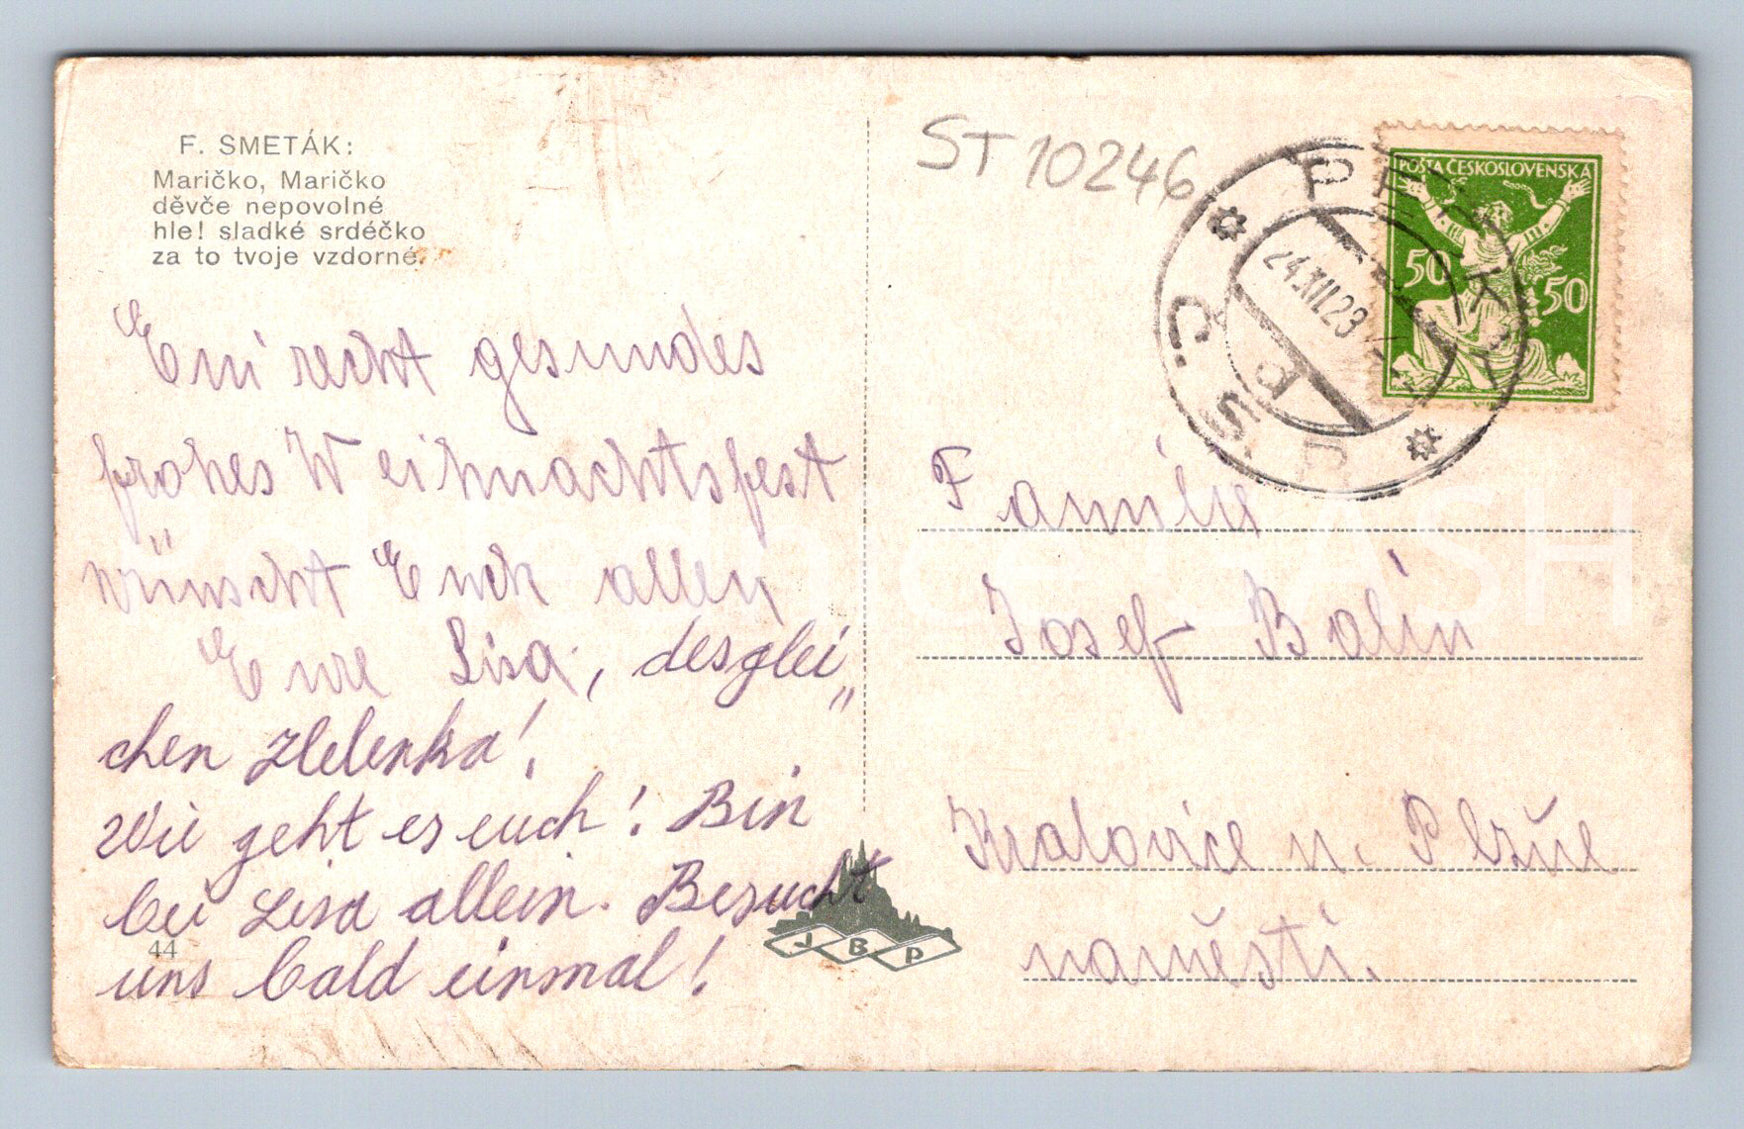 F. SMETÁK:
Maričko, Maričko
děvče nepovolné
hle! sladké srdéčko
za to tvoje vzdorné.
ST 10246
POŠTA ČESKOSLOVENSKÁ
50 50
24.XII.23
Č. S. P.
d
Ein recht gesundes
frohes Weihnachtsfest
wünscht Euch allen
Eure Lisa, desglei„
chen Helenka!
Wie geht es euch! Bin
bei Lisa allein. Besucht
uns bald einmal!
44
J B P
Familie
Josef Balín
Kralovice u. Plzně
naměstí.